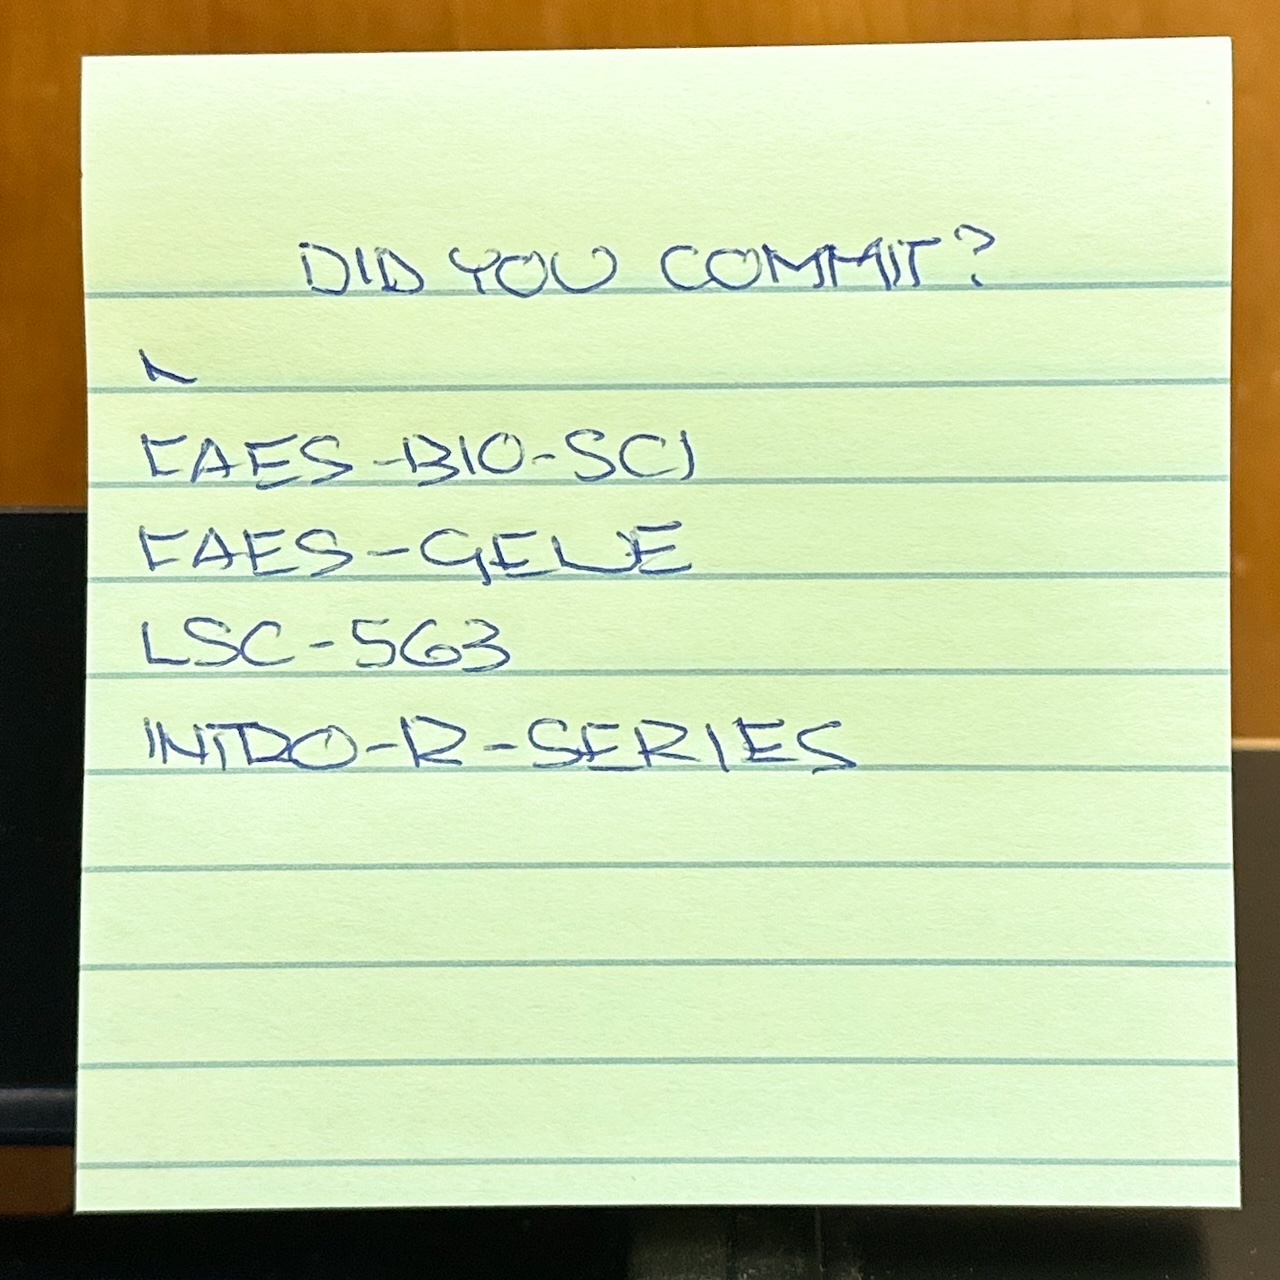 DID YOU COMMIT?
FAES-BIO-SCI
FAES-GELE
LSC-563
INTRO-R-SERIES